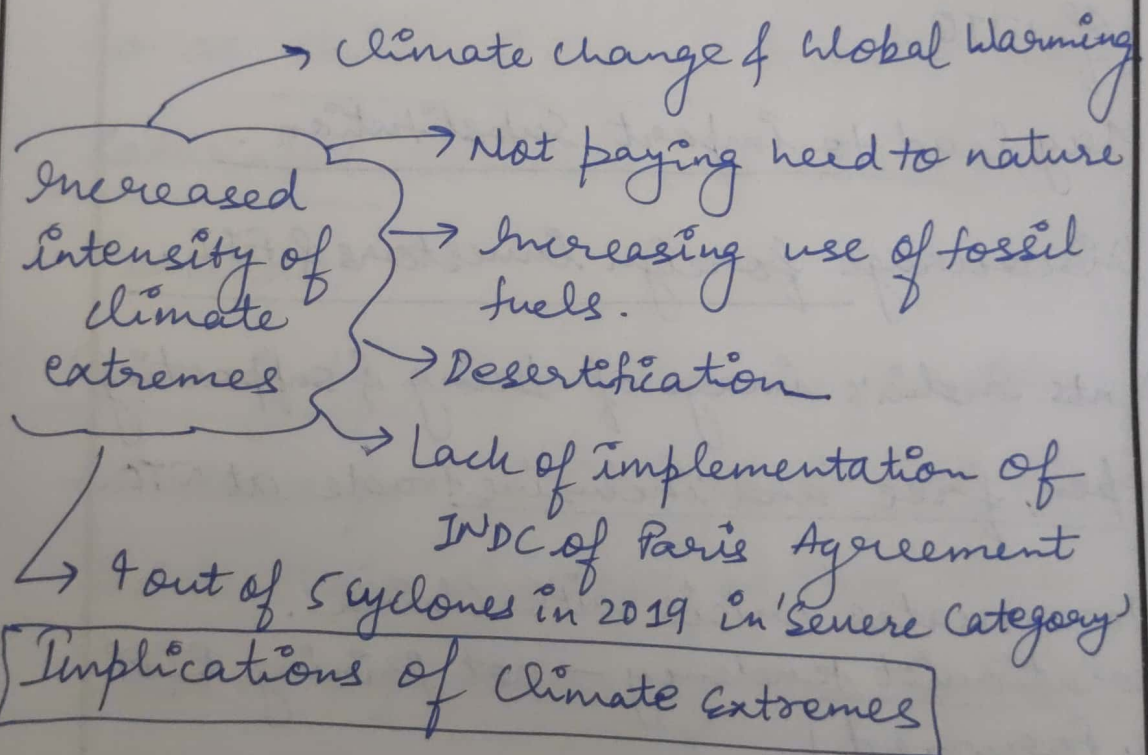 Climate change & Global Warming
Not paying heed to nature
Increased
intensity of
climate
extremes
Increasing use of fossil
fuels.
Desertification
Lack of implementation of
INDC of Paris Agreement
4 out of 5 cyclones in 2019 in 'Severe Category'
Implications of Climate Extremes